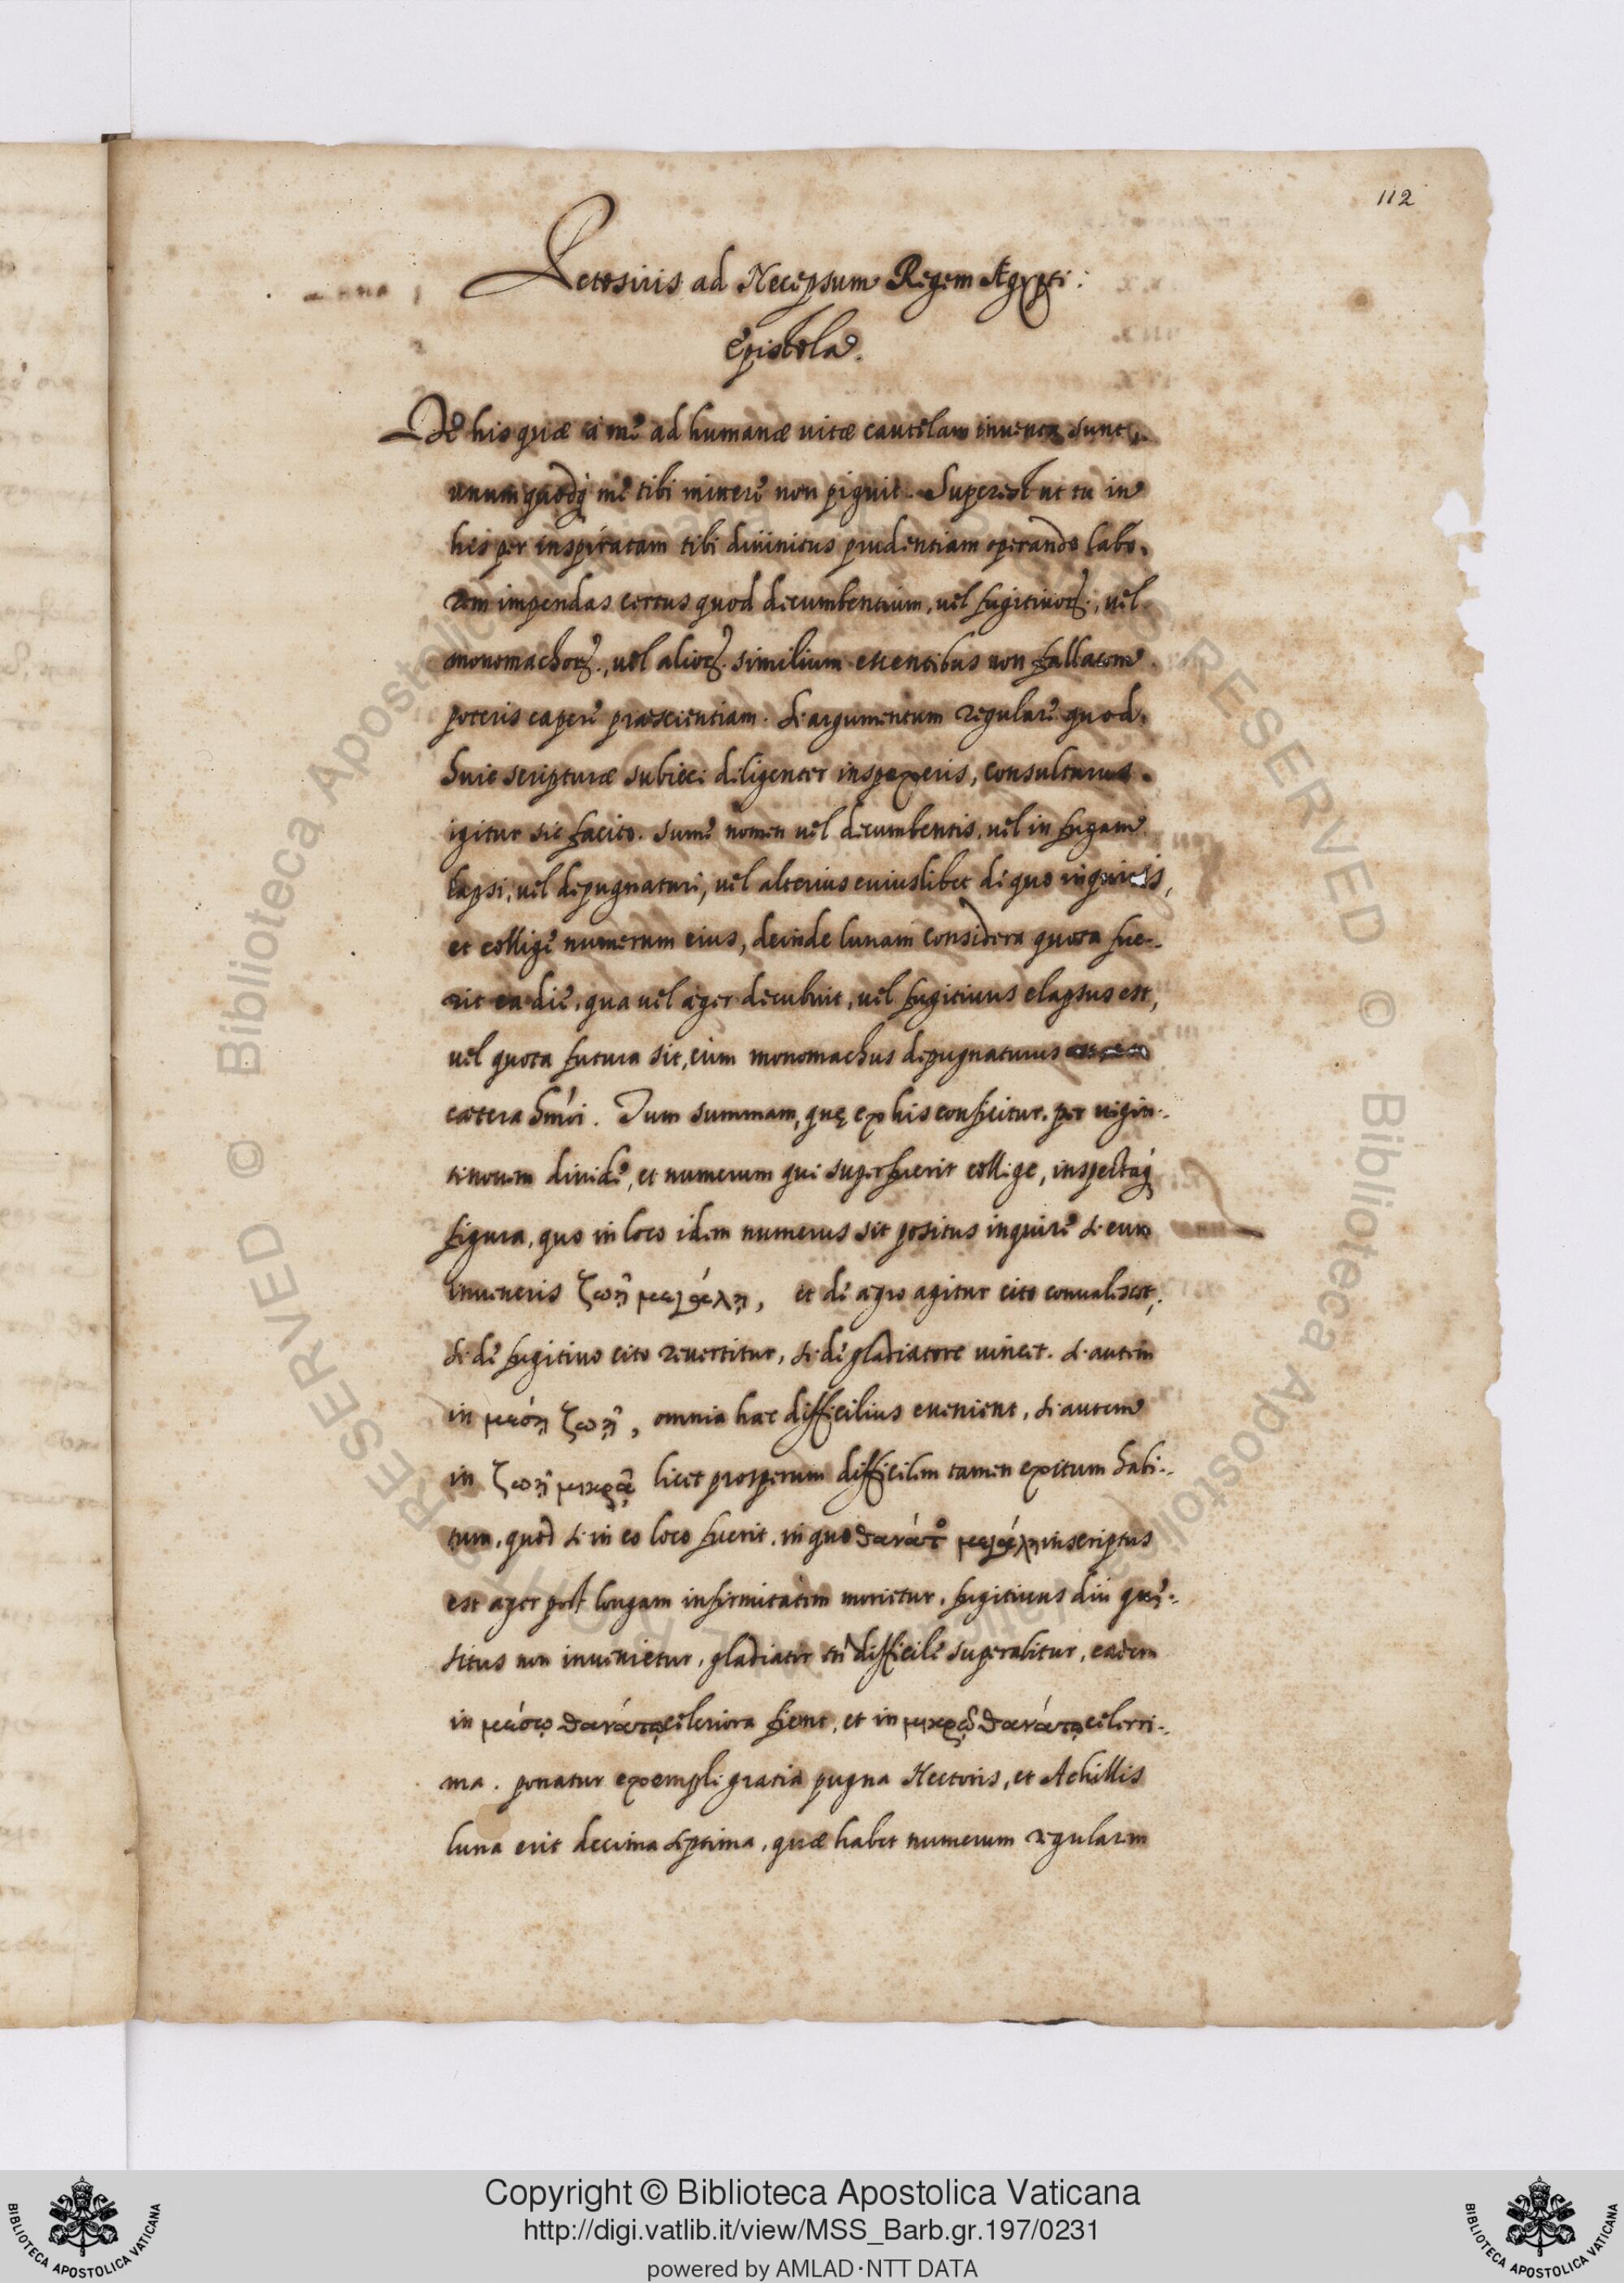 112
Petosiris ad Necepsum Regem Ægypti:
Epistola.
De his quæ a me ad humanæ uitæ cautelam inuenta sunt,
unumquodq; me tibi mittere non piguit. Superest ut tu in
his per inspiratam tibi diuinitus prudentiam operando labo-
rem impendas certus quod decumbentium, uel fugitiuorꝫ., uel
monomachorꝫ., uel aliorꝫ. similium euentibus non fallacem
poteris capere præscientiam. Si argumentum regulare quod
huic scripturæ subieci diligenter inspexeris, consulturus
igitur sic facito. Sume nomen uel decumbentis, uel in fugam
lapsi, uel depugnaturi, uel alterius cuiuslibet de quo inquiris,
et collige numerum eius, deinde lunam considera quota fue-
rit ea die, qua uel æger decubuit, uel fugitiuus elapsus est,
uel quota futura sit, cum monomachus depugnaturus
cætera hmōi. Tum summam, quę ex his conficitur, per uigin-
tinouem diuide, et numerum qui superfuerit collige, inspectaq;
figura, quo in loco idem numerus sit positus inquire si eum
inueneris ζωῇ μεγάλῃ, et de ægro agitur cito conualescet,
si de fugitiuo cito reuertitur, si de gladiatore uincet. Si autem
in μέσῃ ζωῇ, omnia hæc difficilius euenient, si autem
in ζωῇ μικρᾷ licet prosperum difficilem tamen exitum habi-
tum, quod si in eo loco fuerit, in quo θανάτ⁰ μεγάλη inscriptus
est æger post longam infirmitatem morietur, fugitiuus diu quę-
situs non inuenietur, gladiator tn̄ difficile superabitur, eadem
in μέσῳ θανάτῳ celeriora fient, et in μικρῷ θανάτῳ celerri-
ma. ponatur exempli gratia pugna Hectoris, et Achillis
luna erit decima septima, quæ habet numerum regularem
Copyright © Biblioteca Apostolica Vaticana
http://digi.vatlib.it/view/MSS_Barb.gr.197/0231
powered by AMLAD·NTT DATA
BIBLIOTECA APOSTOLICA VATICANA
BIBLIOTECA APOSTOLICA VATICANA